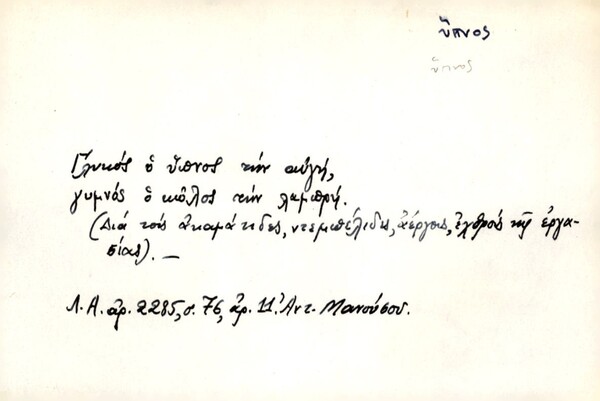 ὕπνος
ὕπνος
Γλυκός ὁ ὕπνος τήν αὐγή,
γυμνός ὁ κῶλος τήν λαμπρή.
(Διά τούς ἀκαμάτηδες, ντεμπέληδες, ἀέργους, ἐχθρούς τῆς ἐργα-
σίας). —
Λ.Α. ἀρ. 2285, σ. 76, ἀρ. 11. Ἀντ. Μανούσου.